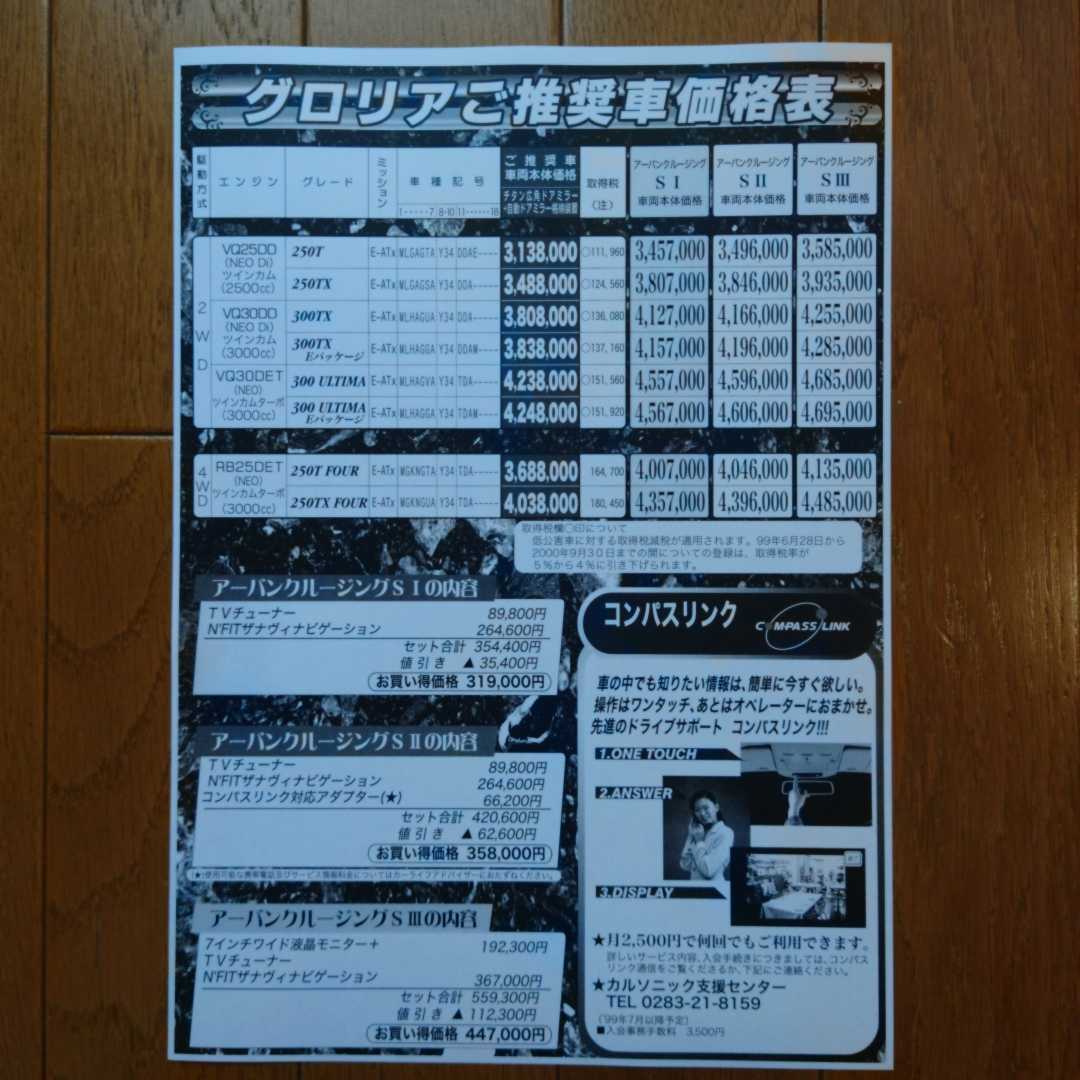 グロリアご推奨車価格表
駆動方式 エンジン グレード ミッション 車種記号 1……7 8・10 11……18 ご推奨車 車両本体価格 チタン広角ドアミラー ・自動ドアミラー格納装置 取得税 (注) アーバンクルージング SⅠ 車両本体価格 アーバンクルージング SⅡ 車両本体価格 アーバンクルージング SⅢ 車両本体価格
2WD
VQ25DD (NEO Di) ツインカム (2500cc)
250T E-ATx MLGAGTA Y34 DDAE----- 3,138,000 ○111,960 3,457,000 3,496,000 3,585,000
250TX E-ATx MLGAGSA Y34 DDA----- 3,488,000 ○124,560 3,807,000 3,846,000 3,935,000
VQ30DD (NEO Di) ツインカム (3000cc)
300TX E-ATx MLHAGUA Y34 DDA----- 3,808,000 ○136,080 4,127,000 4,166,000 4,255,000
300TX Eパッケージ E-ATx MLHAGGA Y34 DDAM----- 3,838,000 ○137,160 4,157,000 4,196,000 4,285,000
VQ30DET (NEO) ツインカムターボ (3000cc)
300 ULTIMA E-ATx MLHAGVA Y34 TDA----- 4,238,000 ○151,560 4,557,000 4,596,000 4,685,000
300 ULTIMA Eパッケージ E-ATx MLHAGGA Y34 TDAM----- 4,248,000 ○151,920 4,567,000 4,606,000 4,695,000
4WD
RB25DET (NEO) ツインカムターボ (3000cc)
250T FOUR E-ATx MGKNGTA Y34 TDA----- 3,688,000 164,700 4,007,000 4,046,000 4,135,000
250TX FOUR E-ATx MGKNGUA Y34 TDA----- 4,038,000 180,450 4,357,000 4,396,000 4,485,000
取得税欄○印について
低公害車に対する取得税減税が適用されます。99年6月28日から
2000年9月30日までの間についての登録は、取得税率が
5%から4%に引き下げられます。
アーバンクルージングSⅠの内容
TVチューナー 89,800円
N'FITザナヴィナビゲーション 264,600円
セット合計 354,400円
値引き ▲35,400円
お買い得価格 319,000円
アーバンクルージングSⅡの内容
TVチューナー 89,800円
N'FITザナヴィナビゲーション 264,600円
コンパスリンク対応アダプター(★) 66,200円
セット合計 420,600円
値引き ▲62,600円
お買い得価格 358,000円
(★)使用可能な携帯電話及びサービス情報料金についてはカーライフアドバイザーにおたずねください。
アーバンクルージングSⅢの内容
7インチワイド液晶モニター+ 192,300円
TVチューナー
N'FITザナヴィナビゲーション 367,000円
セット合計 559,300円
値引き ▲112,300円
お買い得価格 447,000円
コンパスリンク COMPASS LINK
車の中でも知りたい情報は、簡単に今すぐ欲しい。
操作はワンタッチ、あとはオペレーターにおまかせ。
先進のドライブサポート コンパスリンク!!!
1.ONE TOUCH
2.ANSWER
3.DISPLAY
★月2,500円で何回でもご利用できます。
詳しいサービス内容、入会手続きにつきましては、コンパス
リンク通信をご覧くださるか、下記にご連絡ください。
★カルソニック支援センター
TEL 0283-21-8159
('99年7月以降予定)
■入会事務手数料 3,500円